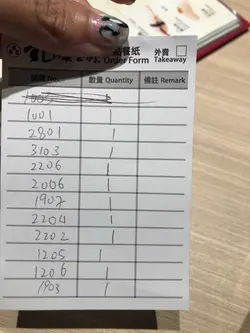 點餐紙 外賣
Order Form Takeaway
號碼 No. 數量 Quantity 備註 Remark
1001 1
2801 1
3103 1
2206 1
2006 1
1902 1
2204 1
2202 1
1205 1
1206 1
1903 1